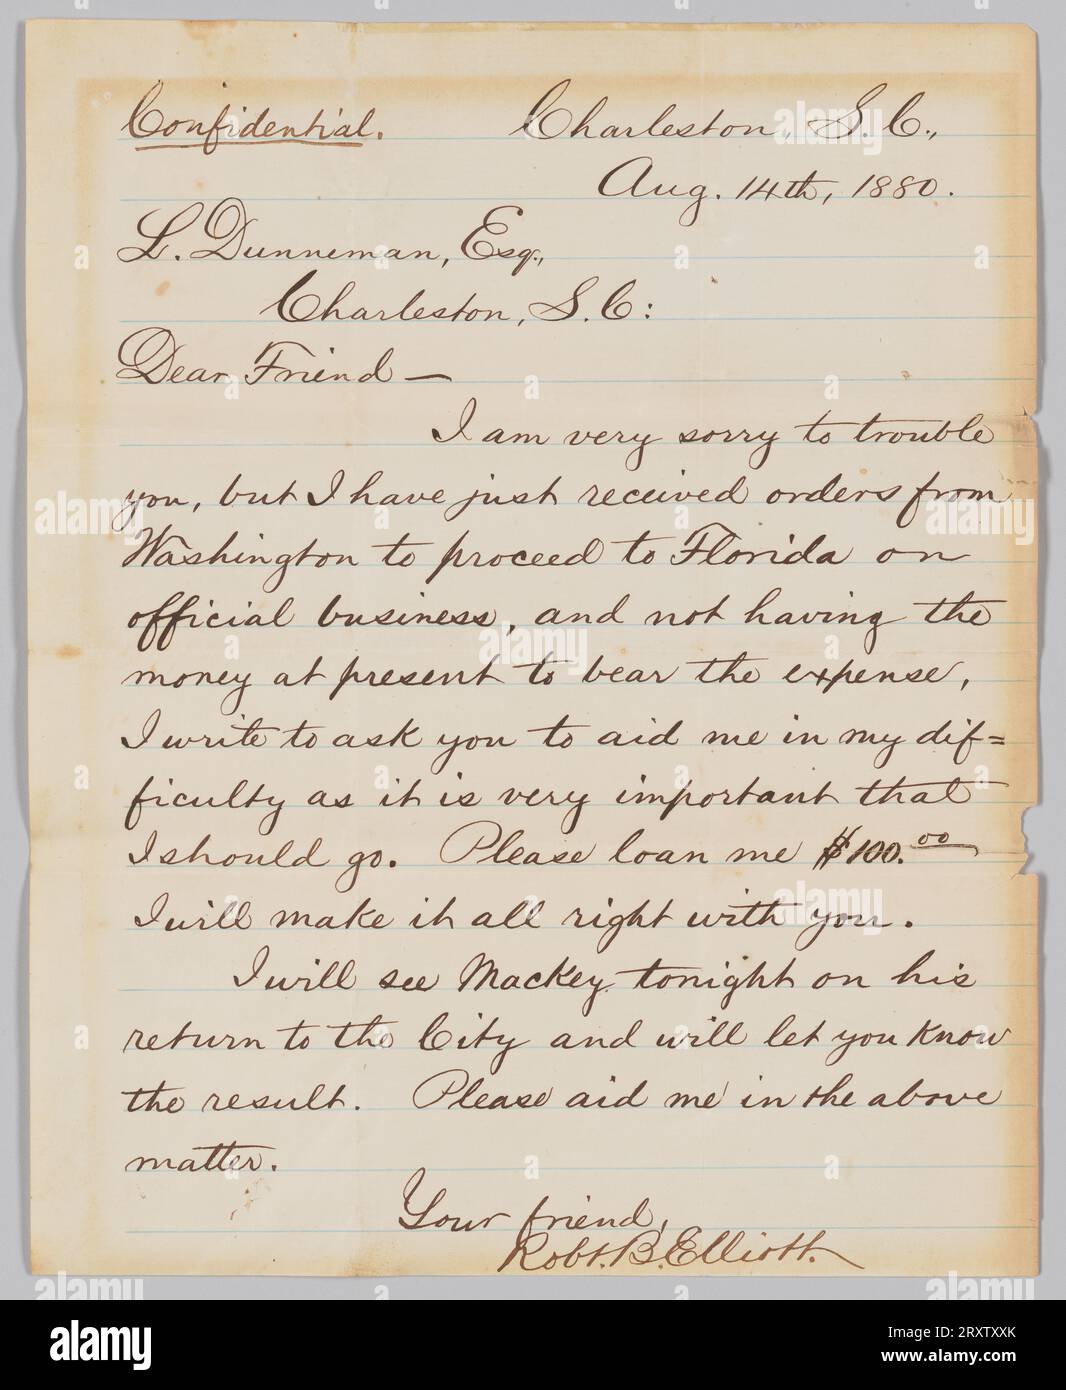 Confidential. Charleston, S. C.,
Aug. 14th, 1880.
L. Dunneman, Esq.,
Charleston, S. C:
Dear Friend —
I am very sorry to trouble
you, but I have just received orders from
Washington to proceed to Florida on
official business, and not having the
money at present to bear the expense,
I write to ask you to aid me in my dif=
ficulty as it is very important that
I should go. Please loan me $100.00
I will make it all right with you.
I will see Mackey tonight on his
return to the City and will let you know
the result. Please aid me in the above
matter.
Your friend,
Robt. B. Elliott.
alamy
Image ID: 2RXTXXK
www.alamy.com